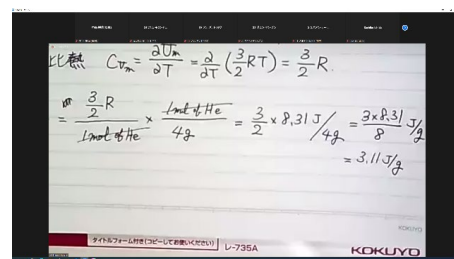 比熱 Cvm = ∂Um/∂T = ∂/∂T (3/2 RT) = 3/2 R.
= 3/2 R / 1mol of He × 1mol of He / 4g = 3/2 × 8.31 J/4g = 3×8.31/8 J/g
= 3.11 J/g
KOKUYO
タイトルフォーム付き(コピーしてお使いください) レ-735A KOKUYO